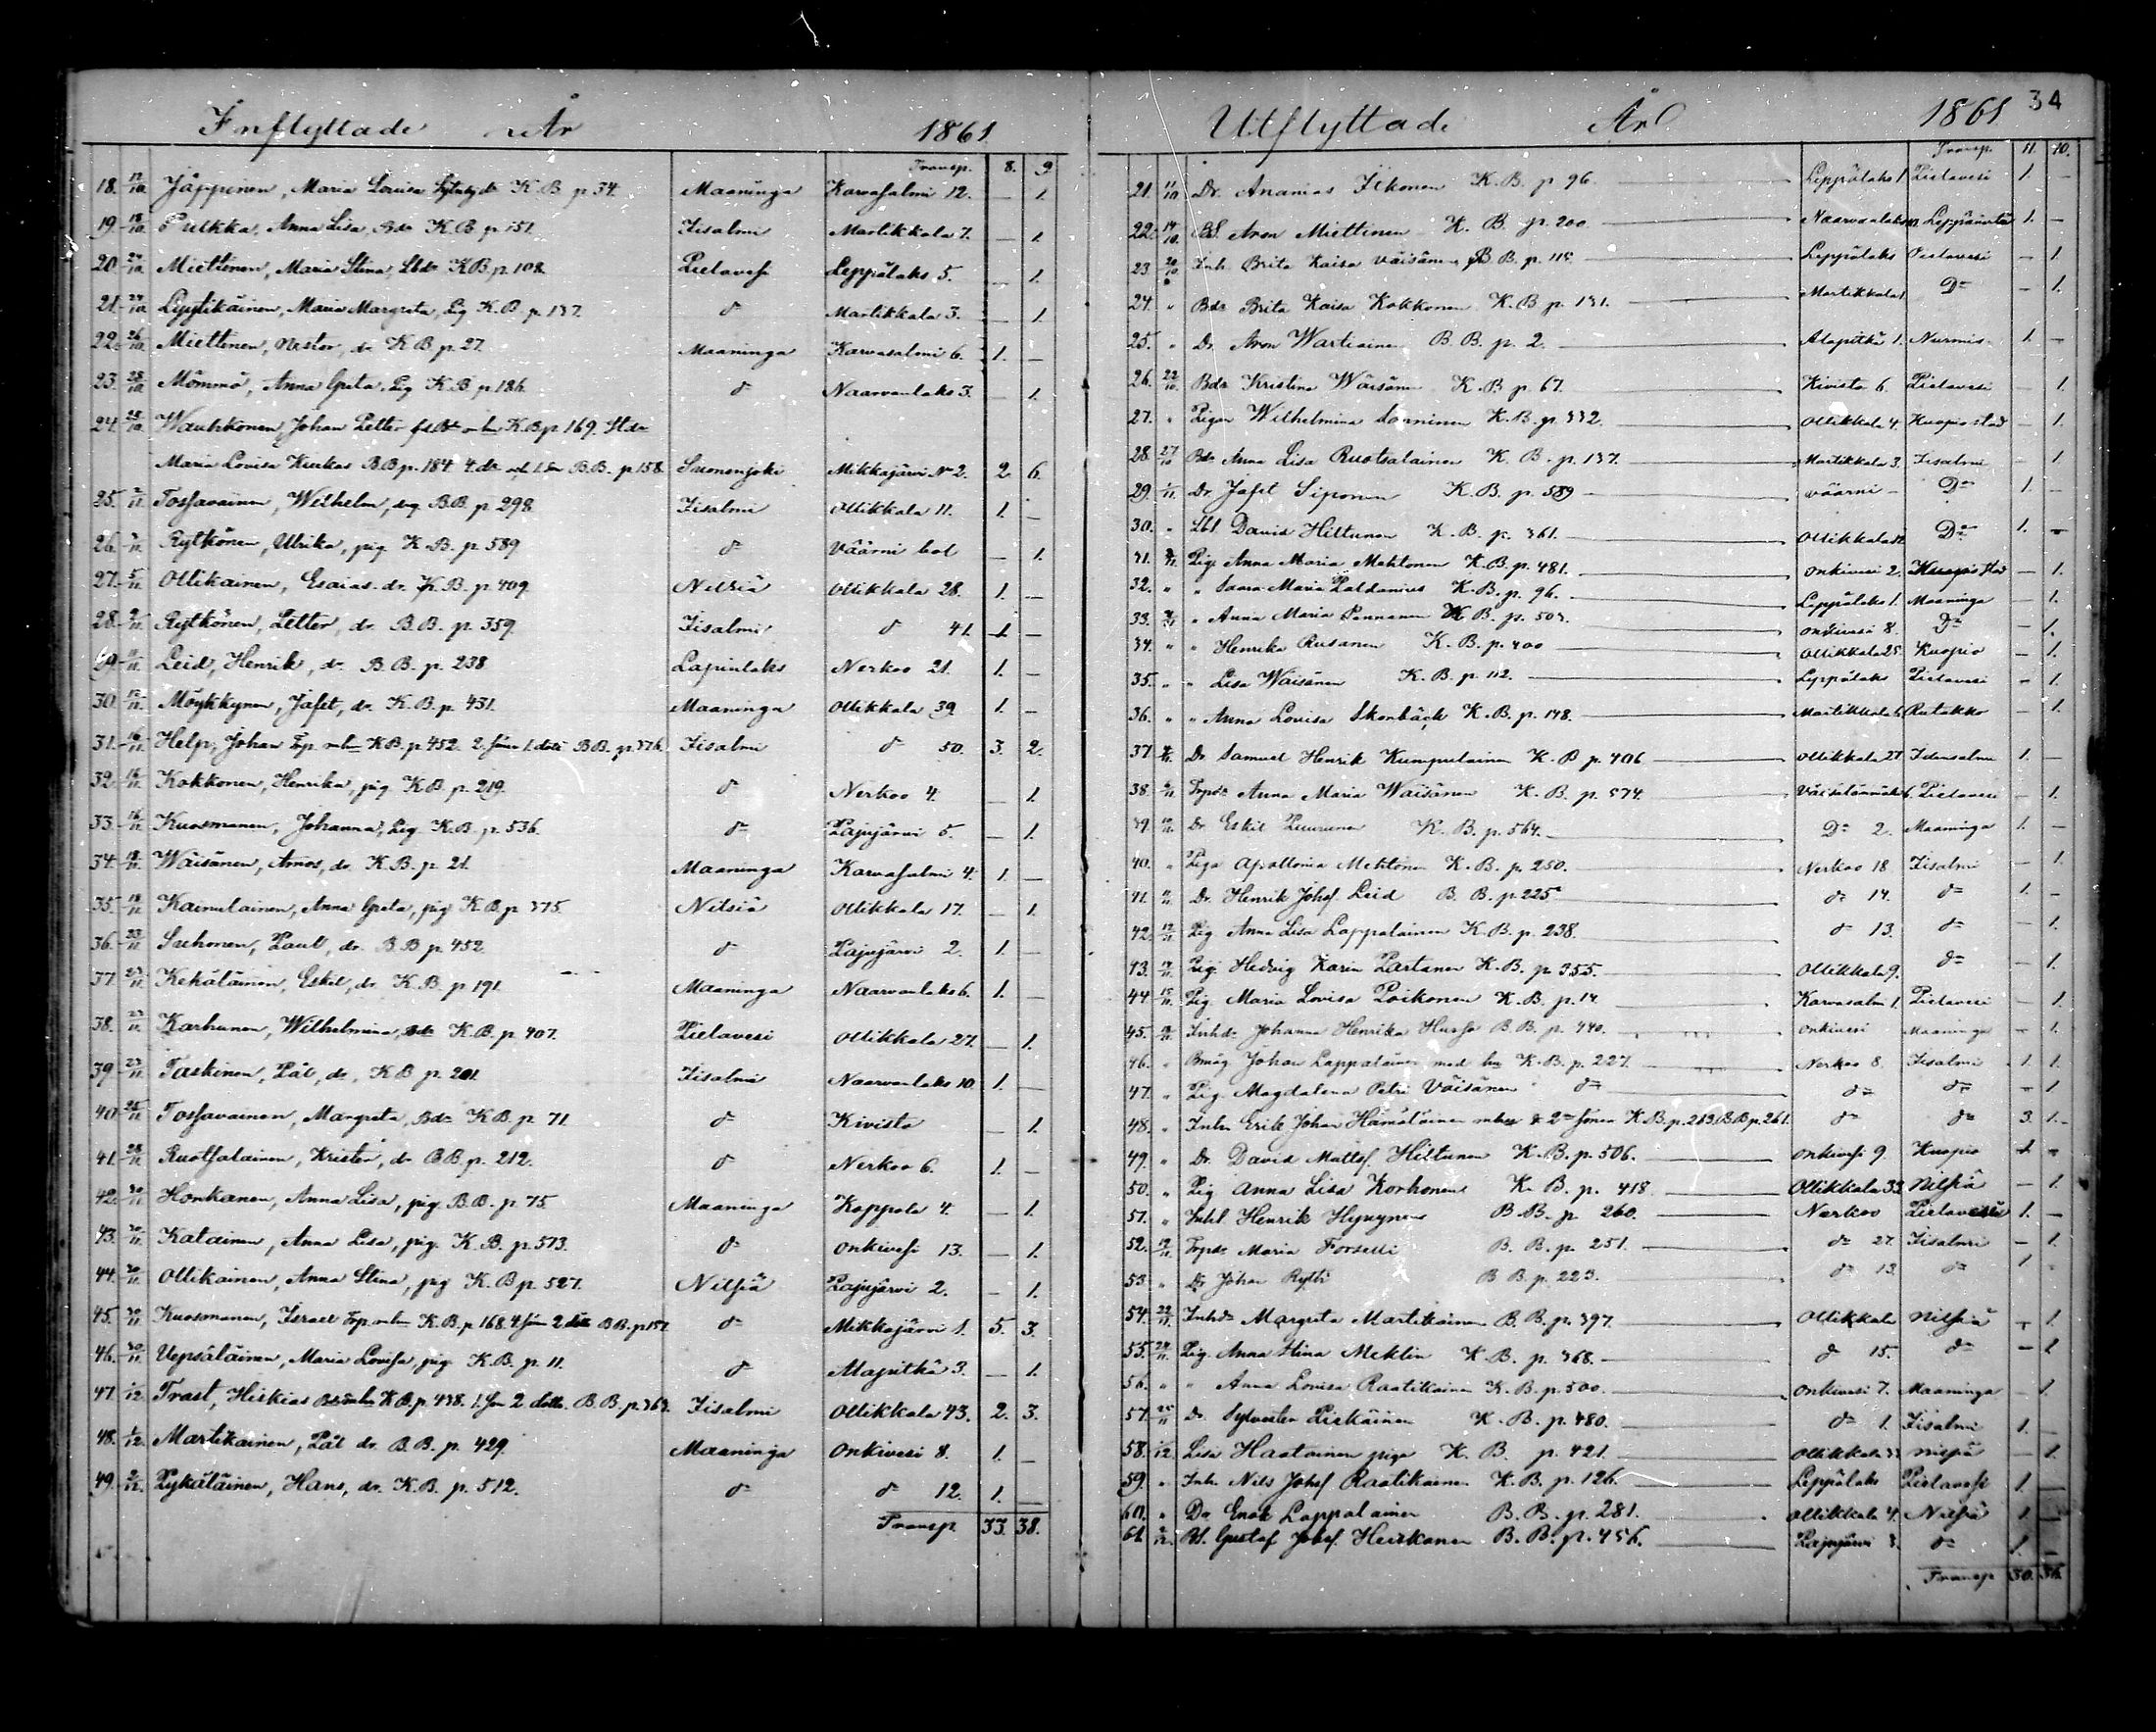 Inflyttade År 1861
Transp. 8. 9
18. 12/10 Jäppinen, Maria Lovisa K.B. p 34. Maaninga Karvasalmi 12. — 1.
19. 18/10 Pulkka, Anna Lisa, Bdr K.B. p 151. Iisalmi Martikkala 7. — 1.
20. 24/10 Miettinen, Maria Stina, K.B. p. 108. Pielavesi Leppälaks 5. — 1.
21. 24/10 Lyytikäinen, Maria Margreta, Pig K.B. p. 137. d:o Martikkala 3. — 1.
22. 26/10 Miettinen, Nestor, dr. K.B. p. 27. Maaninga Karvasalmi 6. 1. —
23. 28/10 Mömmö, Anna Greta, Pig K.B. p. 186. d:o Naarvanlaks 3. — 1.
24. 28/10 Wauhkonen, Johan Petter K.B. p. 169.
Maria Lovisa Kurkas B.B. p. 184. 4. dr B.B. p. 158. Suonenjoki Mikkajärvi N:o 2. 2 6.
25. 2/11 Tossavainen, Wilhelm, drg. B.B. p. 298. Iisalmi Ollikkala 11. 1. —
26. Rytkönen, Ulrika, pig. K.B. p. 589 d:o Väärni bol — 1.
27. 5/11 Ollikainen, Esaias. dr. K.B. p. 409. Nilsiä Ollikkala 28. 1. —
28. 9/11 Rytkönen, Petter, dr. B.B. p. 359. Iisalmi d:o 41. 1. —
29. 11/11 Leid, Henrik, dr. B.B. p. 238 Lapinlaks Nerkoo 21. 1. —
30. Möykkynen, Jafet, dr. K.B. p. 431. Maaninga Ollikkala 39. 1. —
31. 16/11 Help, Johan Trp. K.B. p. 452. B.B. p. 376. Iisalmi d:o 50. 3. 2.
32. 16/11 Kokkonen, Henrika, pig. K.B. p. 219. d:o Nerkoo 4. — 1.
33. 16/11 Kuosmanen, Johanna, Pig. K.B. p. 536. d:o Pajujärvi 5. — 1.
34. 18/11 Wäisänen, Amos, dr. K.B. p. 21. Maaninga Karvasalmi 4. 1. —
35. 18/11 Kainulainen, Anna Greta, pig K.B. p 375. Nilsiä Ollikkala 17. — 1.
36. 23/11 Suhonen, Paul, dr. B.B. p 452. d:o Pajujärvi 2. 1. —
37. 23/11 Kekäläinen, Eskel, dr. K.B. p 191. Maaninga Naarvanlaks 6. 1. —
38. 23/11 Karhunen, Wilhelmina, Bdr K.B. p. 407. Pielavesi Ollikkala 27. — 1.
39 23/11 Taskinen, Pål, dr. K.B. p. 201. Iisalmi Naarvanlaks 10. 1. —
40. 25/11 Tossavainen, Margreta, Bdr. K.B. p. 71. d:o Kivisto — 1.
41. 28/11 Ruotsalainen, Krister, dr. B.B. p. 212. d:o Nerkoo 6. 1. —
42. 30/11 Honkanen, Anna Lisa, pig. B.B. p. 75. Maaninga Koppola 4. — 1.
43. 30/11 Katainen, Anna Lisa, pig. K.B. p. 573. d:o Onkivesi 13. — 1.
44. 30/11 Ollikainen, Anna Stina, pig K.B. p. 527. Nilsiä Pajujärvi 2. — 1.
45. 30/11 Kuosmanen, Israel Trp. K.B. p. 168. B.B. p. 157. d:o Mikkajärvi 1. 5. 3.
46. 30/11 Uepsäläinen, Maria Lovisa, pig. K.B. p. 11. d:o Alapitkä 3. — 1.
47. 1/12 Trast, Heskias K.B. p. 438. 1. son 2 döttr. B.B. p. 363. Iisalmi Ollikkala 43. 2. 3.
48. 1/12 Martikainen, Pål dr. B.B. p. 429. Maaninga Onkivesi 8. 1. —
49. 2/12 Pykäläinen, Hans, dr. K.B. p. 512. d:o d:o 12. 1. —
Transp. 33. 38.
Utflyttade År 1861 34
Transp. 11. 10.
21. 11/10 Dr. Ananias Itkonen K.B. p. 96. Leppälaks 1 Pielavesi 1. —
22. 14/10 Aron Miettinen K.B. p. 200 Naarvanlaks Leppävirta 1. —
23 20/10 Inh. Brita Kaisa Väisänen B.B. p. 115. Leppälaks Pielavesi — 1.
24. " Bdr Brita Kaisa Kokkonen K.B. p. 131. Martikkala D:o — 1.
25. " Dr. Aron Wartiainen B.B. p. 2. Alapitkä 1. Nurmis. 1. —
26. 22/10 Bdr Kristina Wäisänen K.B. p. 67. Kivisto 6. Pielavesi — 1.
27. " Pigan Wilhelmina K.B. p. 332. Ollikkala 4. Kuopio stad — 1.
28. 27/10 Bdr. Anna Lisa Ruotsalainen K.B. p. 137. Martikkala 3. Iisalmi — 1.
29. 1/11 Dr. Jafet Siponen K.B. p. 589 Väärni — D:o 1. —
30. " David Hiltunen K.B. p. 361. Ollikkala D:o 1. —
31. Pig. Anna Maria Mehtonen K.B. p. 481. Onkivesi 2. Kuopio stad — 1.
32. " " Saara Maria Paldanius K.B. p. 96. Leppälaks 1. Maaninga — 1.
33. " Anna Maria Pennanen K.B. p. 503. Onkivesi 8. D:o — 1.
34. " " Henrika Rusanen K.B. p. 400 Ollikkala 25. Kuopio — 1.
35. " " Lisa Wäisänen K.B. p. 112. Leppälaks Pielavesi — 1.
36. " " Anna Lovisa Skonbäck K.B. p. 148. Martikkala Rutakko — 1.
37. Dr. Samuel Henrik Kumpulainen K.B. p. 406 Ollikkala 27. Idensalmi 1. —
38. Trpdr. Anna Maria Wäisänen K.B. p. 574. Väisälänmäki 6. Pielavesi — 1.
39. Dr. Eskil Puurunen K.B. p. 564. D:o 2. Maaninga 1. —
40. " Piga Apollonia Mehtonen K.B. p. 250. Nerkoo 18 Iisalmi — 1.
41. 11/11 Dr. Henrik Johsf. Leid B.B. p. 225 d:o 14. d:o 1. —
42. 12/11 Pig. Anna Lisa Lappalainen K.B. p. 238. d:o 13. d:o — 1.
43. 14/11 Pig. Hedvig Karin Partanen K.B. p 355. Ollikkala 9. d:o — 1.
44 15/11 Pig. Maria Lovisa Poikonen K.B. p. 14. Karvasalm 1. Pielavesi — 1.
45. Inhdr. Johanna Henrika Husso B.B. p. 440. Onkivesi Maaninga — 1.
46. " Bmåg. Johan Lappalainen med hu K.B. p. 227. Nerkoo 8. Iisalmi 1. 1.
47. " Pig. Magdalena Petri Väisänen d:o d:o d:o — 1
48. " Inhs Erik Johan Hämäläinen K.B. p. 263. B.B. p. 261. d:o d:o 3. 1.
49. " Dr. David Mattsf. Hiltunen K.B. p. 506. Onkivesi 9. Kuopio 1. —
50. " Pig Anna Lisa Korhonen K.B. p. 418. Ollikkala 33. Nilsiä — 1.
51. " Inhl Henrik Hynynen B.B. p 260. Nerkoo Pielavesi 1. —
52. 19/11 Trpdr. Maria Forsell B.B. p. 251. d:o 27. Iisalmi — 1.
53. " Dr. Johan B.B. p. 223. d:o 13. d:o 1 —
54. 22/11 Inhdr. Margreta Martikainen B.B. p. 397. Ollikkala Nilsiä — 1.
55. 24/11 Pig. Anna Stina Meklin K.B. p. 368. d:o 15. d:o — 1
56. " " Anna Lovisa Raatikainen K.B. p. 500. Onkivesi 7. Maaninga — 1.
57. 25/11 Dr. Sylvester Piskäinen K.B. p. 480. d:o 1. Iisalmi 1. —
58. 1/12 Lisa Haatainen piga K.B. p. 421. Ollikkala Nilsiä — 1.
59. " Inh. Nils Johsf Raatikainen K.B. p. 126. Leppälaks Pielavesi 1. —
60. " Dr Enok Lappalainen B.B. p. 281. Ollikkala 4. Nilsiä 1. —
61. 2/12 Gustaf Johsf. Heiskanen B.B. p. 456. Pajujärvi 3. d:o 1. —
Transp 30. 36.